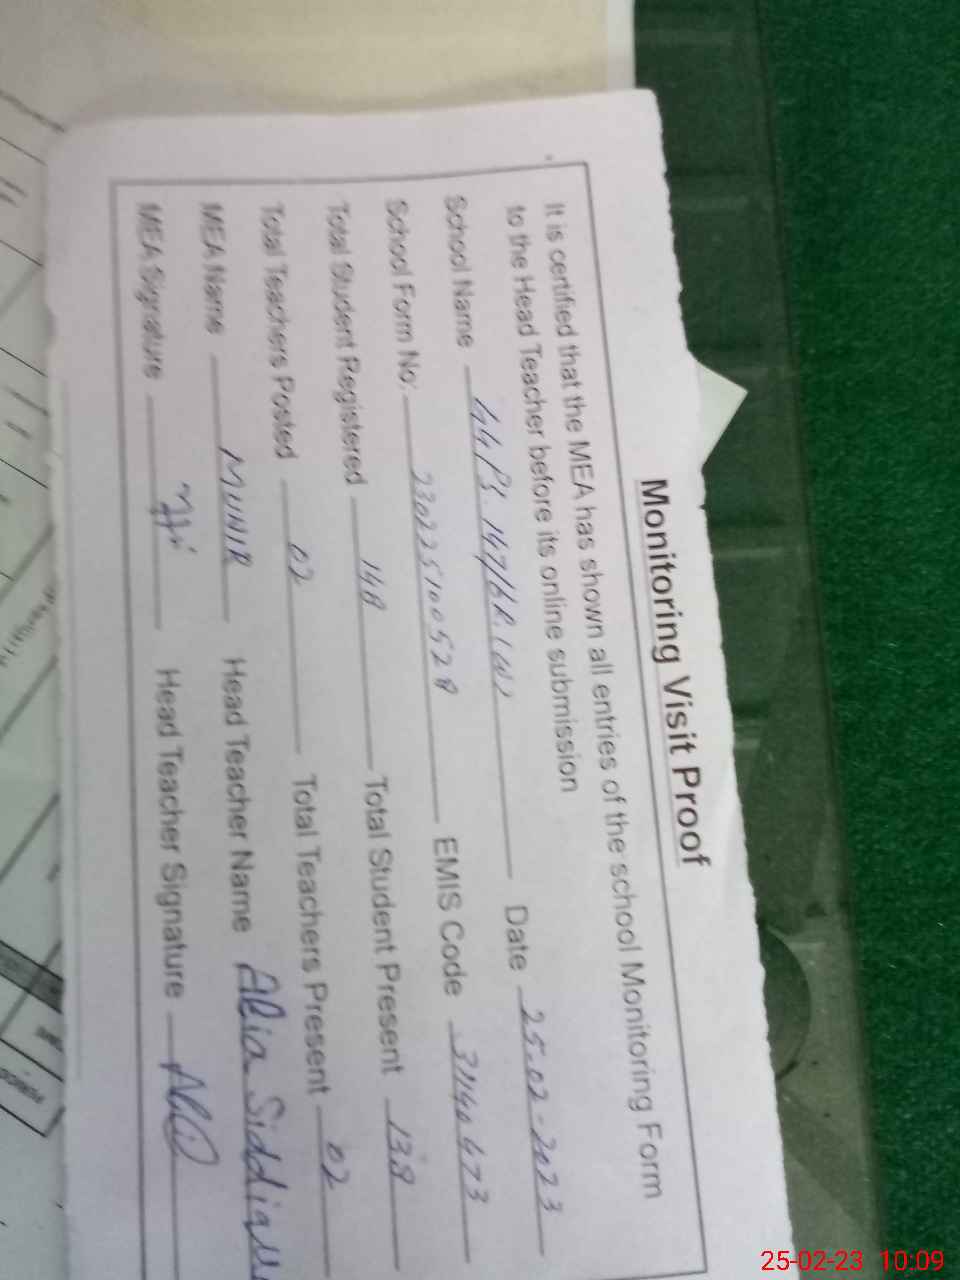 Monitoring Visit Proof
It is certified that the MEA has shown all entries of the school Monitoring Form
to the Head Teacher before its online submission
School Name 147/6R. (W) Date 25-02-2023
School Form No: 230225100528 EMIS Code 31140673
Total Student Registered 148 Total Student Present 138
Total Teachers Posted 02 Total Teachers Present 02
MEA Name MUNIR Head Teacher Name Alia Siddiqu
MEA Signature Head Teacher Signature
25-02-23 10:09